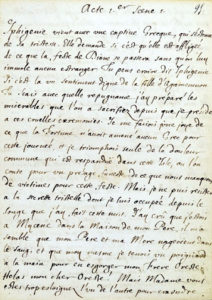 Acte 1.er Scene 1.
Iphigenie vient avec une captive Grecque, qui s'etonne
de sa tristesse. Elle demande si c'est qu'elle est affligée
de ce que la feste de Diane se passera sans qu'on luy
immole aucun estranger. Tu peux croire dit Iphigenie
si c'est la un sentiment digne de la fille d'Agamemnon
Tu sçais avec quelle repugnance j'ay preparé les
miserables que l'on a sacrifiez depuis que je preside
a ces cruelles ceremonies. Je me faisois une joye de
ce que la Fortune n'avoit amené aucun Grec pour
cette journée, et je triomphois seule de la douleur
commune qui est repandue dans cette Isle, où l'on
conte pour un presage funeste de ce que nous manquons
de victimes pour cette feste. Mais je ne puis resister
a la secrette tristesse dont je suis occupée depuis le
songe que j'ay fait cette nuit. J'ay crû que j'estois
a Mycene dans la Maison de mon Pere. il m'a
semblé que mon Pere et ma Mere nageoient dans
le sang, et que moy mesme je tenois un poignard
a la main pour en egorger mon frere Oreste.
Helas mon cher Oreste! Mais Madame vous
estes trop esloignez l'un de l'autre pour craindre